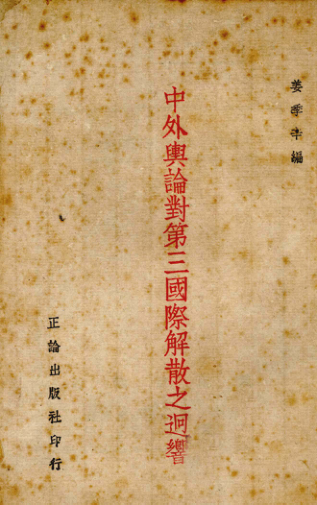 姜季辛編
中外輿論對第三國際解散之迴響
正論出版社印行